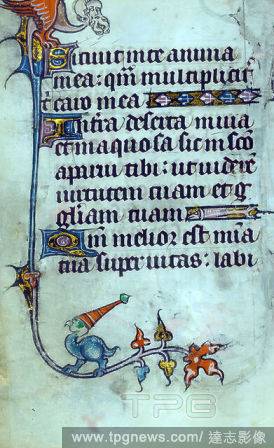 Sitiuit in te anima
mea: qm̄ multiplicit̄
t̄ caro mea
In t̄ra deserta inuia
et inaquosa sic in sc̄o
aparui tibi: ut uiderē
uirtutem tuam et g
gl̄iam tuam
Qm̄ melior est mīa
tua super uitas: labi
TPG
www.tpgnews.com/ 達志影像